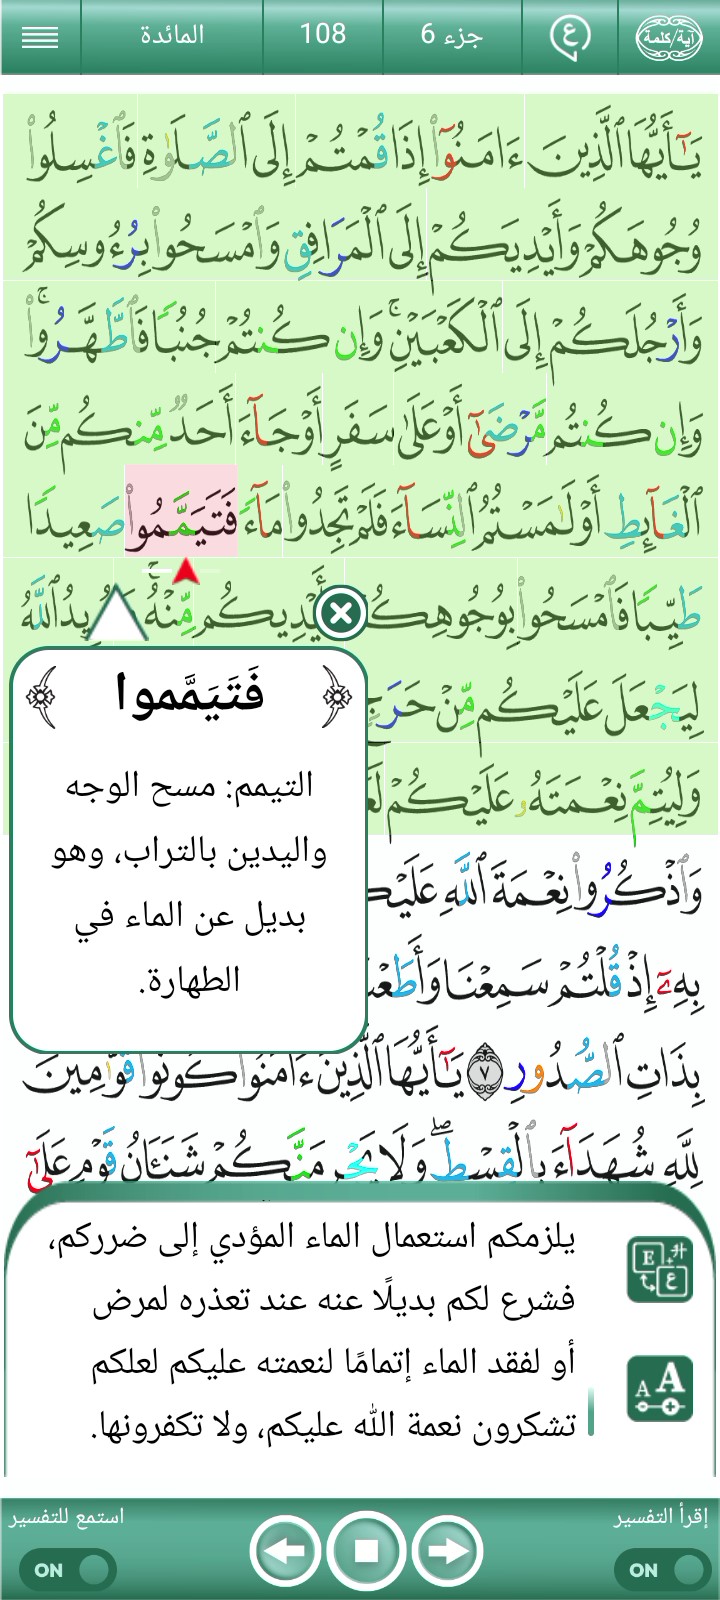 آية/كلمة
ع
جزء 6
108
المائدة
يَـٰٓأَيُّهَا ٱلَّذِينَ ءَامَنُوٓا۟ إِذَا قُمْتُمْ إِلَى ٱلصَّلَوٰةِ فَٱغْسِلُوا۟
وُجُوهَكُمْ وَأَيْدِيَكُمْ إِلَى ٱلْمَرَافِقِ وَٱمْسَحُوا۟ بِرُءُوسِكُمْ
وَأَرْجُلَكُمْ إِلَى ٱلْكَعْبَيْنِ ۚ وَإِن كُنتُمْ جُنُبًا فَٱطَّهَّرُوا۟ ۚ
وَإِن كُنتُم مَّرْضَىٰٓ أَوْ عَلَىٰ سَفَرٍ أَوْ جَآءَ أَحَدٌ مِّنكُم مِّنَ
ٱلْغَآئِطِ أَوْ لَـٰمَسْتُمُ ٱلنِّسَآءَ فَلَمْ تَجِدُوا۟ مَآءً فَتَيَمَّمُوا۟ صَعِيدًا
طَيِّبًا فَٱمْسَحُوا۟ بِوُجُوهِكُ أَيْدِيكُم مِّنْهُ ۚ يدُ ٱللَّهُ
لِيَجْعَلَ عَلَيْكُم مِّنْ حَرَجٍ
وَلِيُتِمَّ نِعْمَتَهُۥ عَلَيْكُمْ لَعَ
وَٱذْكُرُوا۟ نِعْمَةَ ٱللَّهِ عَلَيْكُ
بِهِۦٓ إِذْ قُلْتُمْ سَمِعْنَا وَأَطَعْنَ
بِذَاتِ ٱلصُّدُورِ ٧ يَـٰٓأَيُّهَا ٱلَّذِينَ ءَامَنُوا۟ كُونُوا۟ قَوَّٰمِينَ
لِلَّهِ شُهَدَآءَ بِٱلْقِسْطِ ۖ وَلَا يَجْرِمَنَّكُمْ شَنَـَٔانُ قَوْمٍ عَلَىٰٓ
﴿ فَتَيَمَّموا ﴾
التيمم: مسح الوجه
واليدين بالتراب، وهو
بديل عن الماء في
الطهارة.
يلزمكم استعمال الماء المؤدي إلى ضرركم،
فشرع لكم بديلًا عنه عند تعذره لمرض
أو لفقد الماء إتمامًا لنعمته عليكم لعلكم
تشكرون نعمة الله عليكم، ولا تكفرونها.
E
ع
A A
إقرأ التفسير
استمع للتفسير
ON
ON